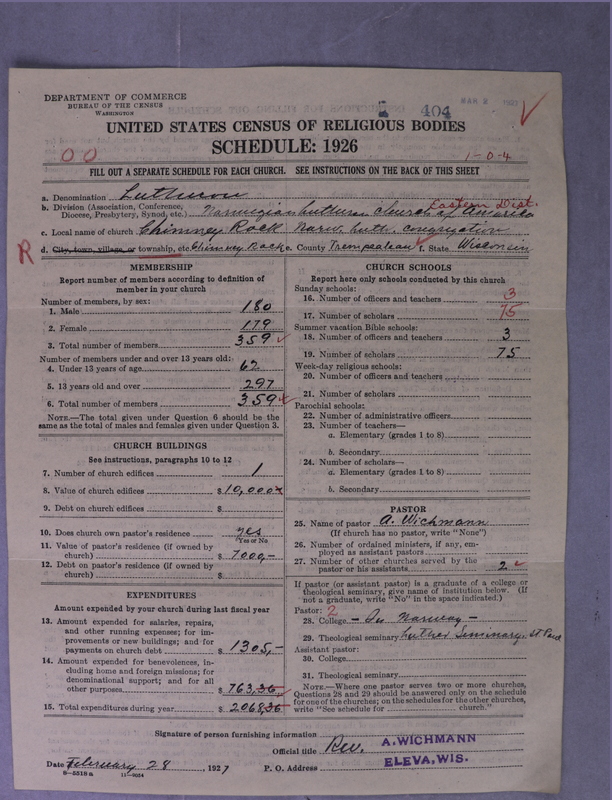 DEPARTMENT OF COMMERCE
BUREAU OF THE CENSUS
WASHINGTON
404
MAR 2 1927
UNITED STATES CENSUS OF RELIGIOUS BODIES
SCHEDULE: 1926
0 0
1-0-4
FILL OUT A SEPARATE SCHEDULE FOR EACH CHURCH. SEE INSTRUCTIONS ON THE BACK OF THIS SHEET
a. Denomination Lutheran
Eastern Dist.
b. Division (Association, Conference, Diocese, Presbytery, Synod, etc.) Norwegian Lutheran Church of America
c. Local name of church Chimney Rock Norw. Luth. Congregation
R
d. City, town, village, or township, etc. Chimney Rock e. County Trempealeau f. State Wisconsin
MEMBERSHIP
Report number of members according to definition of
member in your church
Number of members, by sex:
1. Male 180
2. Female 179
3. Total number of members 359
Number of members under and over 13 years old:
4. Under 13 years of age 62
5. 13 years old and over 297
6. Total number of members 359
NOTE.—The total given under Question 6 should be the
same as the total of males and females given under Question 3.
CHURCH BUILDINGS
See instructions, paragraphs 10 to 12
7. Number of church edifices 1
8. Value of church edifices $ 10,000
9. Debt on church edifices $
10. Does church own pastor's residence yes
(Yes or No)
11. Value of pastor's residence (if owned by
church) $ 7000,-
12. Debt on pastor's residence (if owned by
church) $
EXPENDITURES
Amount expended by your church during last fiscal year
13. Amount expended for salaries, repairs,
and other running expenses; for im-
provements or new buildings; and for
payments on church debt $ 1305,-
14. Amount expended for benevolences, in-
cluding home and foreign missions; for
denominational support; and for all
other purposes $ 763,36
15. Total expenditures during year $ 2068,36
CHURCH SCHOOLS
Report here only schools conducted by this church
Sunday schools:
16. Number of officers and teachers 3
17. Number of scholars 75
Summer vacation Bible schools:
18. Number of officers and teachers 3
19. Number of scholars 75
Week-day religious schools:
20. Number of officers and teachers
21. Number of scholars
Parochial schools:
22. Number of administrative officers
23. Number of teachers—
a. Elementary (grades 1 to 8)
b. Secondary
24. Number of scholars—
a. Elementary (grades 1 to 8)
b. Secondary
PASTOR
25. Name of pastor A. Wichmann
(If church has no pastor, write "None")
26. Number of ordained ministers, if any, em-
ployed as assistant pastors
27. Number of other churches served by the
pastor or his assistants 2
If pastor (or assistant pastor) is a graduate of a college or
theological seminary, give name of institution below. (If
not a graduate, write "No" in the space indicated.)
Pastor: 2
28. College - In Norway -
29. Theological seminary Luther Seminary, St. Paul
Assistant pastor:
30. College
31. Theological seminary
NOTE.—Where one pastor serves two or more churches,
Questions 28 and 29 should be answered only on the schedule
for one of the churches; on the schedules for the other churches,
write "See schedule for church."
Signature of person furnishing information
Official title Rev. A. WICHMANN
Date February 28, 1927 P. O. Address ELEVA, WIS.
8-5518a 11-9054